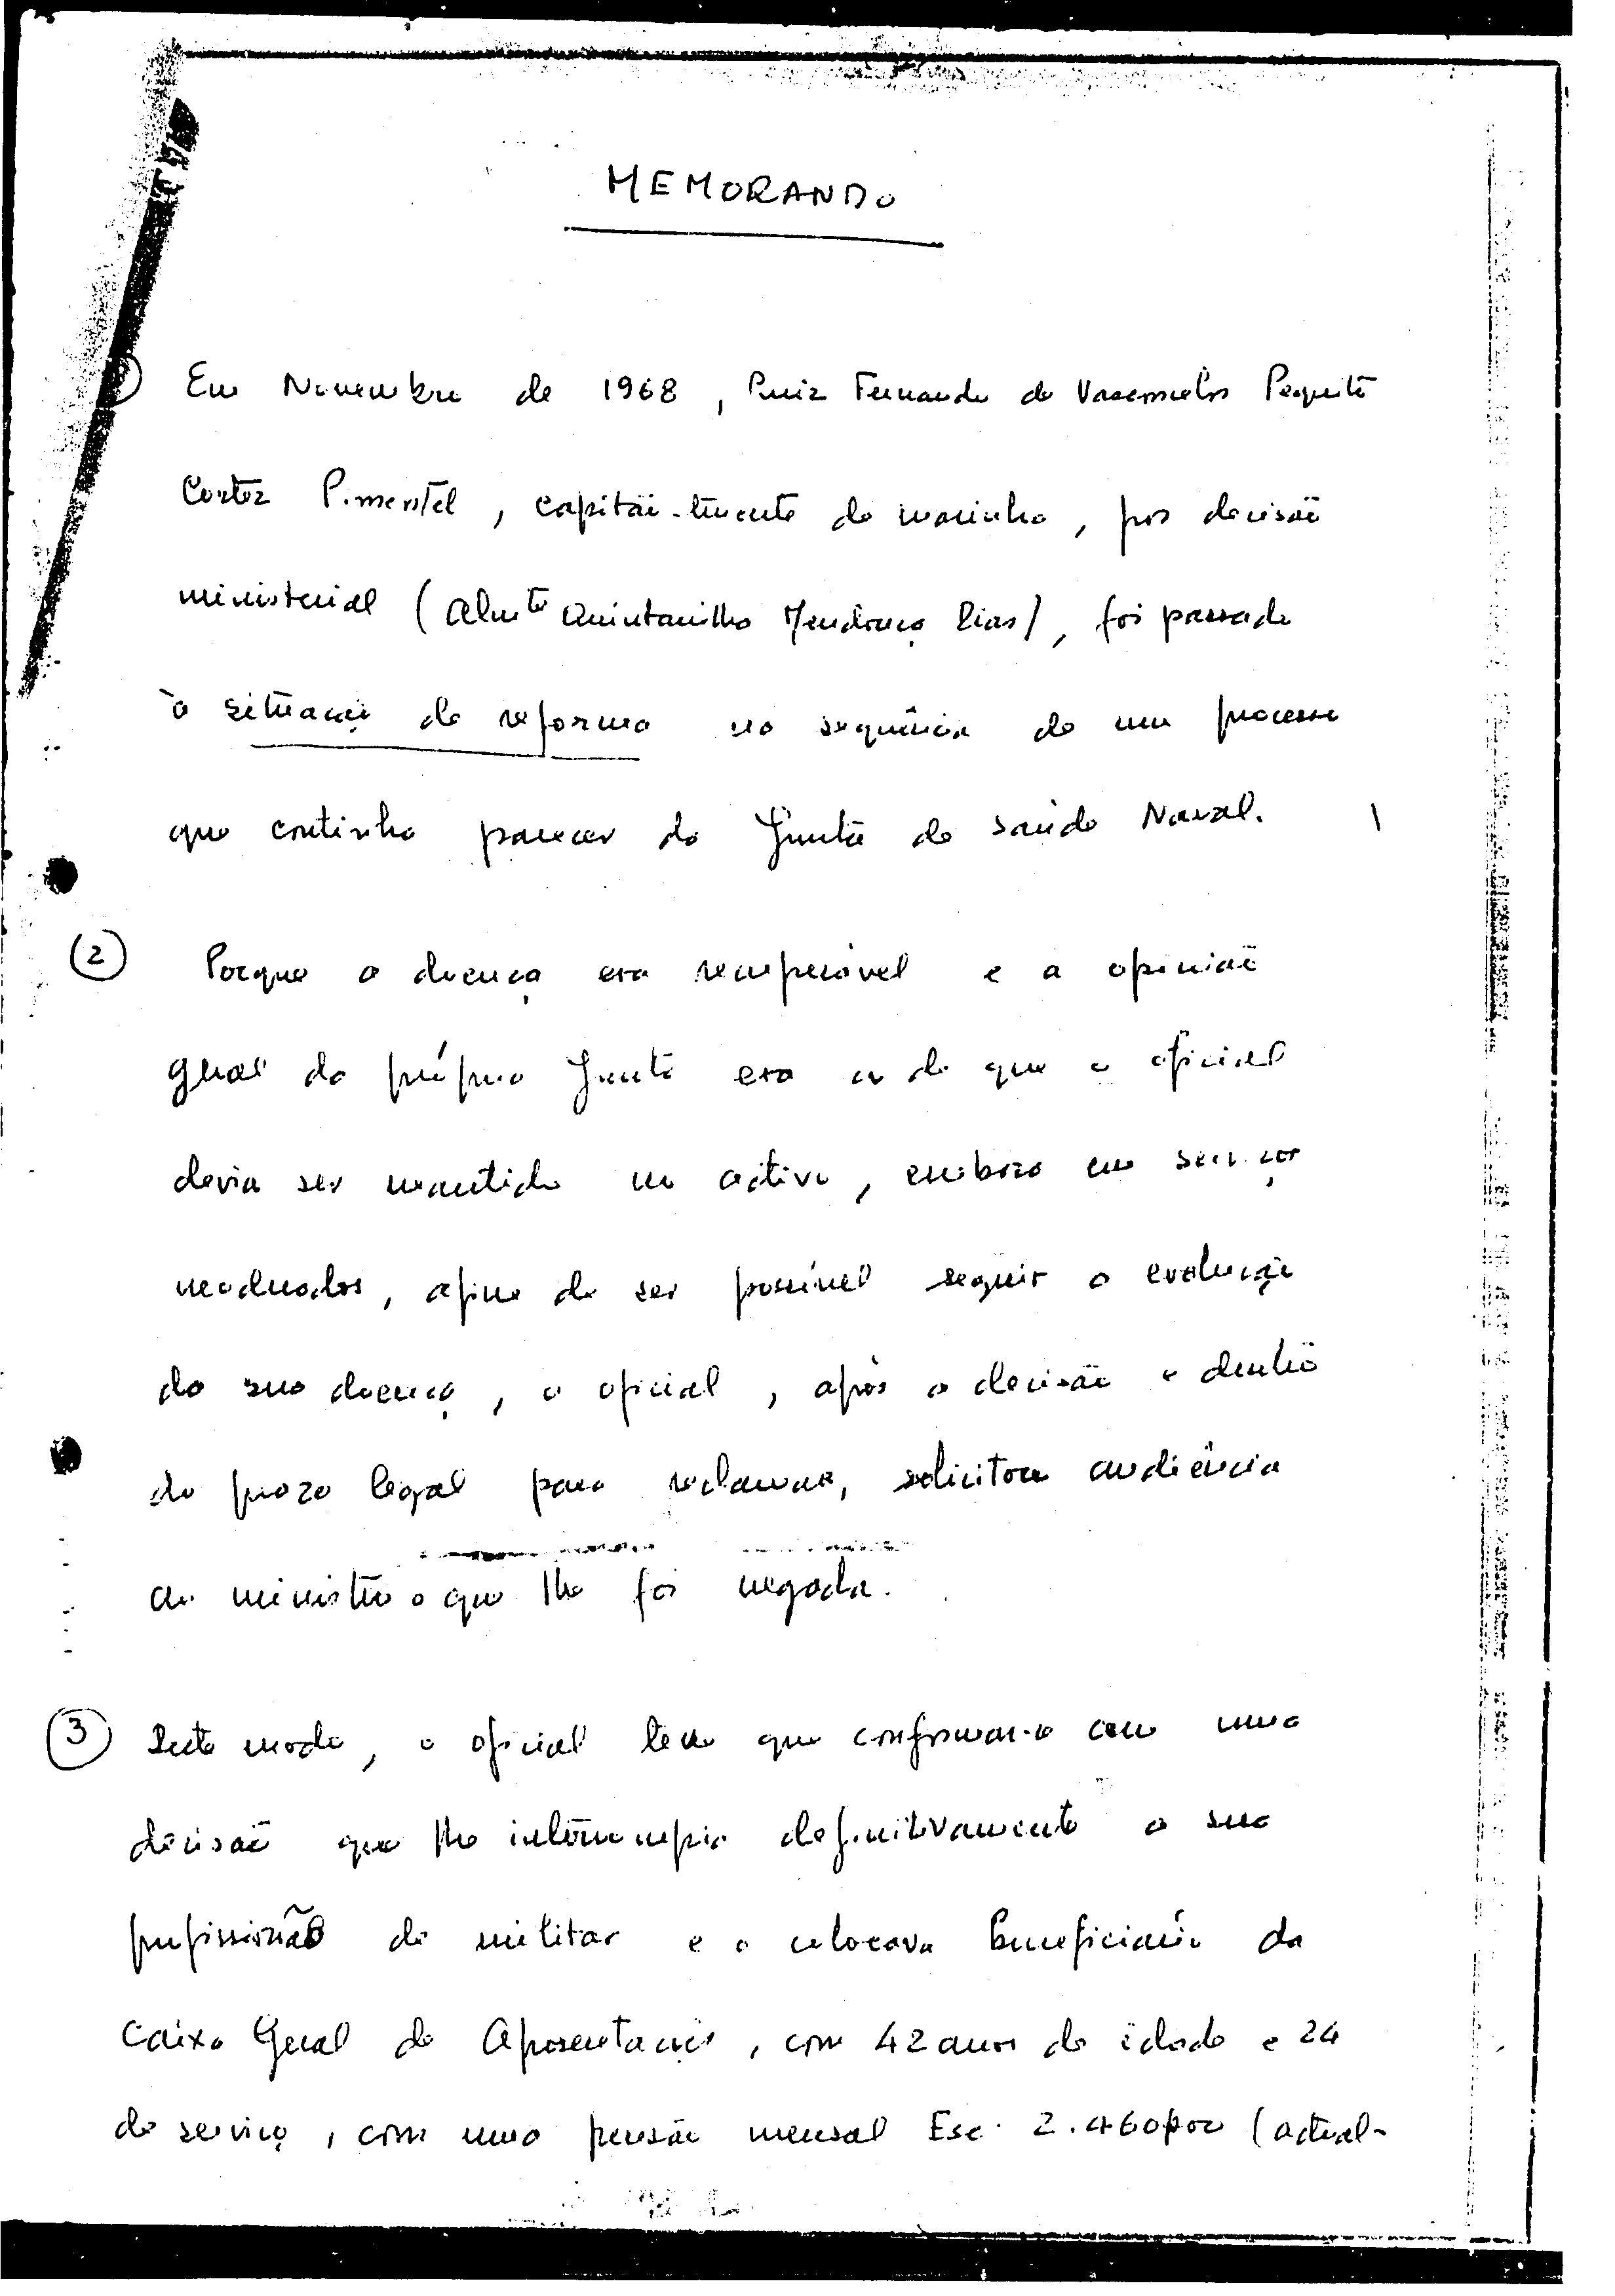 MEMORANDO
Em Novembro de 1968, Ruiz Fernando de Vasconcelos Pequito
Cortez Pimentel, capitão-tenente da marinha, por decisão
ministerial (Almte Quintanilha Mendonça Dias), foi passado
à situação de reforma na sequência de um processo
que continha parecer da Junta de Saúde Naval.
(2) Porque a doença era recuperável e a opinião
geral da própria Junta era a de que o oficial
devia ser mantido no activo, embora em serviços
moderados, afim de ser possível seguir a evolução
da sua doença, o oficial, após a decisão e dentro
do prazo legal para reclamar, solicitou audiência
ao ministro o que lhe foi negada.
(3) Deste modo, o oficial teve que conformar-se com uma
decisão que lhe interrompia definitivamente a sua
profissão de militar e o colocava beneficiário da
Caixa Geral de Aposentações, com 42 anos de idade e 24
de serviço, com uma pensão mensal Esc. 2.460$00 (actual-